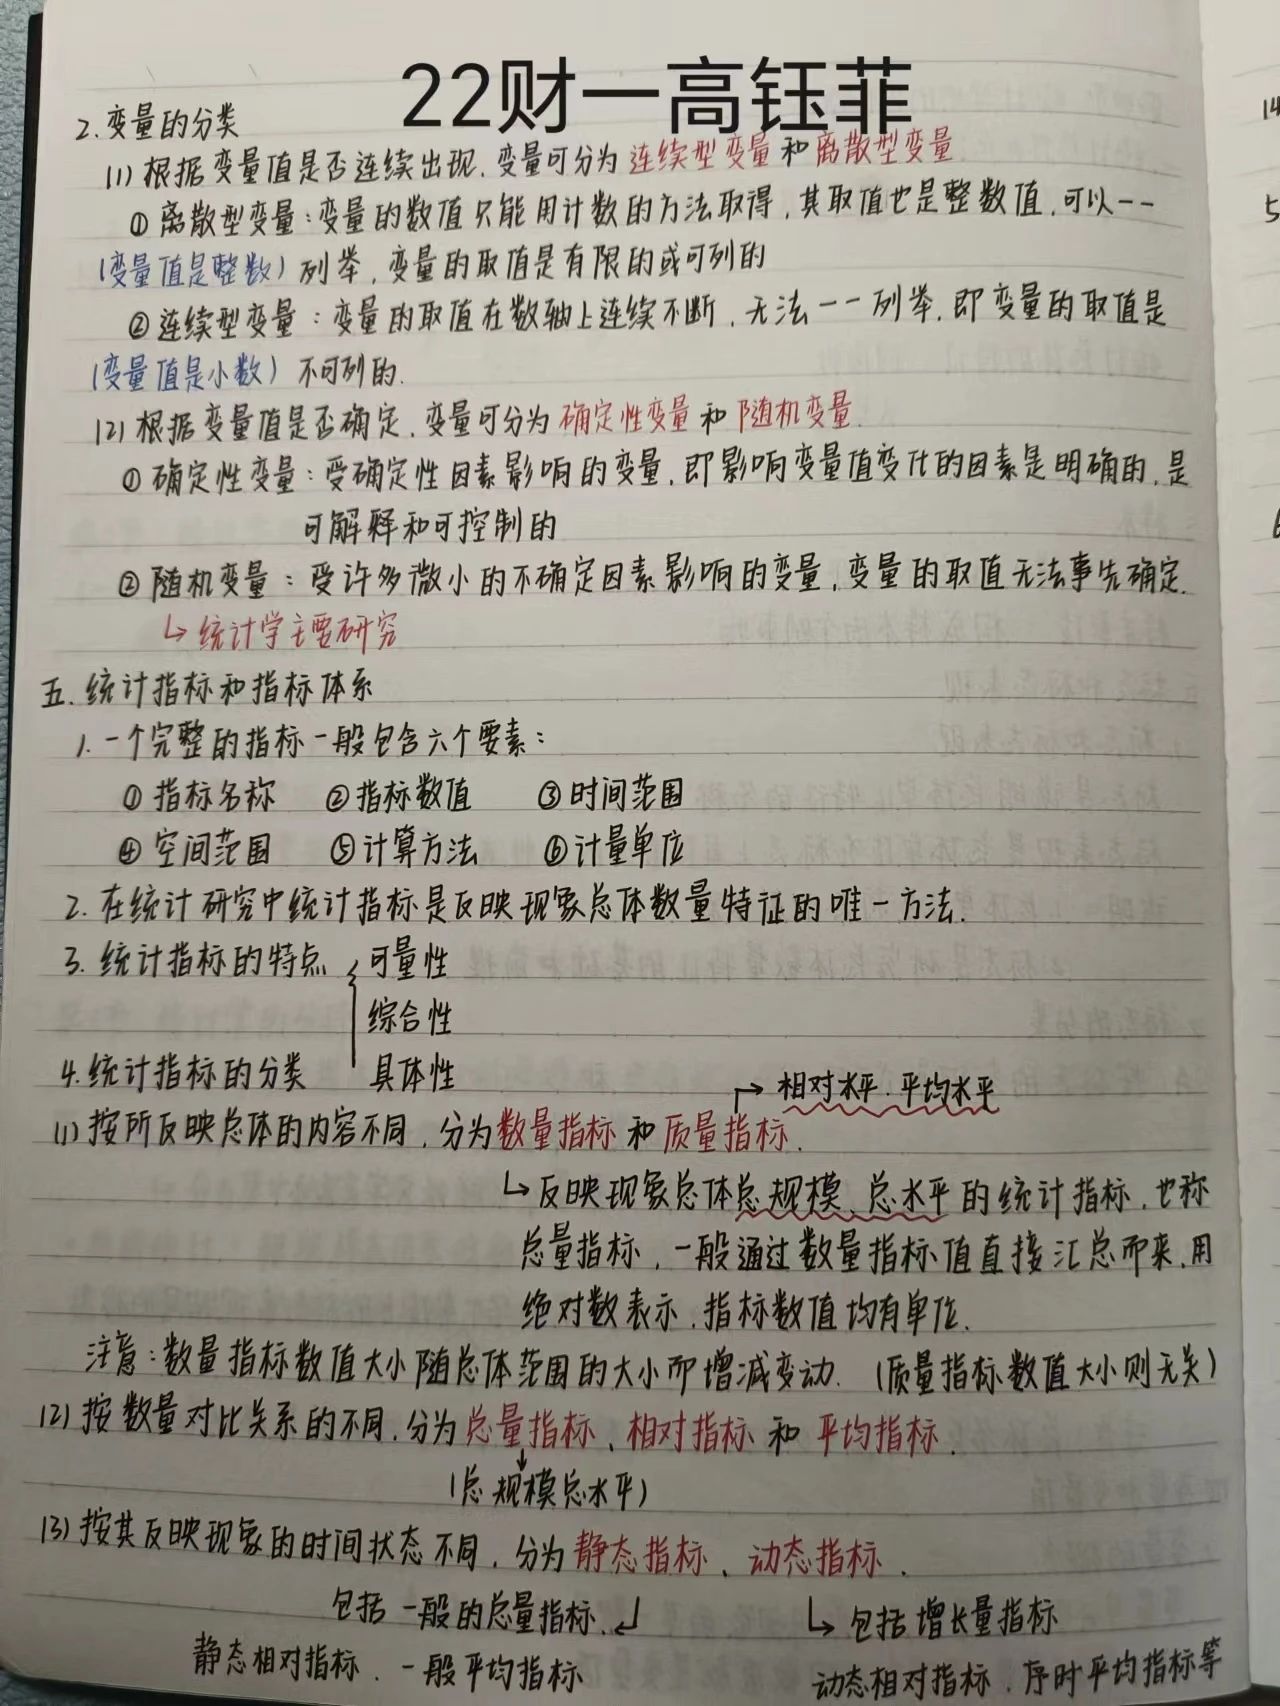 22财一高钰菲
2.变量的分类
(1)根据变量值是否连续出现,变量可分为连续型变量和离散型变量
①离散型变量:变量的数值只能用计数的方法取得,其取值也是整数值,可以一一
(变量值是整数)列举,变量的取值是有限的或可列的
②连续型变量:变量的取值在数轴上连续不断,无法一一列举,即变量的取值是
(变量值是小数)不可列的.
(2)根据变量值是否确定,变量可分为确定性变量和随机变量.
①确定性变量:受确定性因素影响的变量,即影响变量值变化的因素是明确的,是
可解释和可控制的
②随机变量:受许多微小的不确定因素影响的变量,变量的取值无法事先确定.
↳统计学主要研究
五.统计指标和指标体系
1.一个完整的指标一般包含六个要素:
①指标名称 ②指标数值 ③时间范围
④空间范围 ⑤计算方法 ⑥计量单位
2.在统计研究中统计指标是反映现象总体数量特征的唯一方法.
3.统计指标的特点 可量性
综合性
4.统计指标的分类 具体性
→相对水平.平均水平
(1)按所反映总体的内容不同,分为数量指标和质量指标.
↳反映现象总体总规模、总水平的统计指标,也称
总量指标,一般通过数量指标值直接汇总而来,用
绝对数表示,指标数值均有单位.
注意:数量指标数值大小随总体范围的大小而增减变动.(质量指标数值大小则无关)
(2)按数量对比关系的不同,分为总量指标、相对指标和平均指标.
(总规模总水平)
(3)按其反映现象的时间状态不同,分为静态指标、动态指标.
包括一般的总量指标.↲ ↳包括增长量指标
静态相对指标、一般平均指标 动态相对指标、序时平均指标等
14
5
6